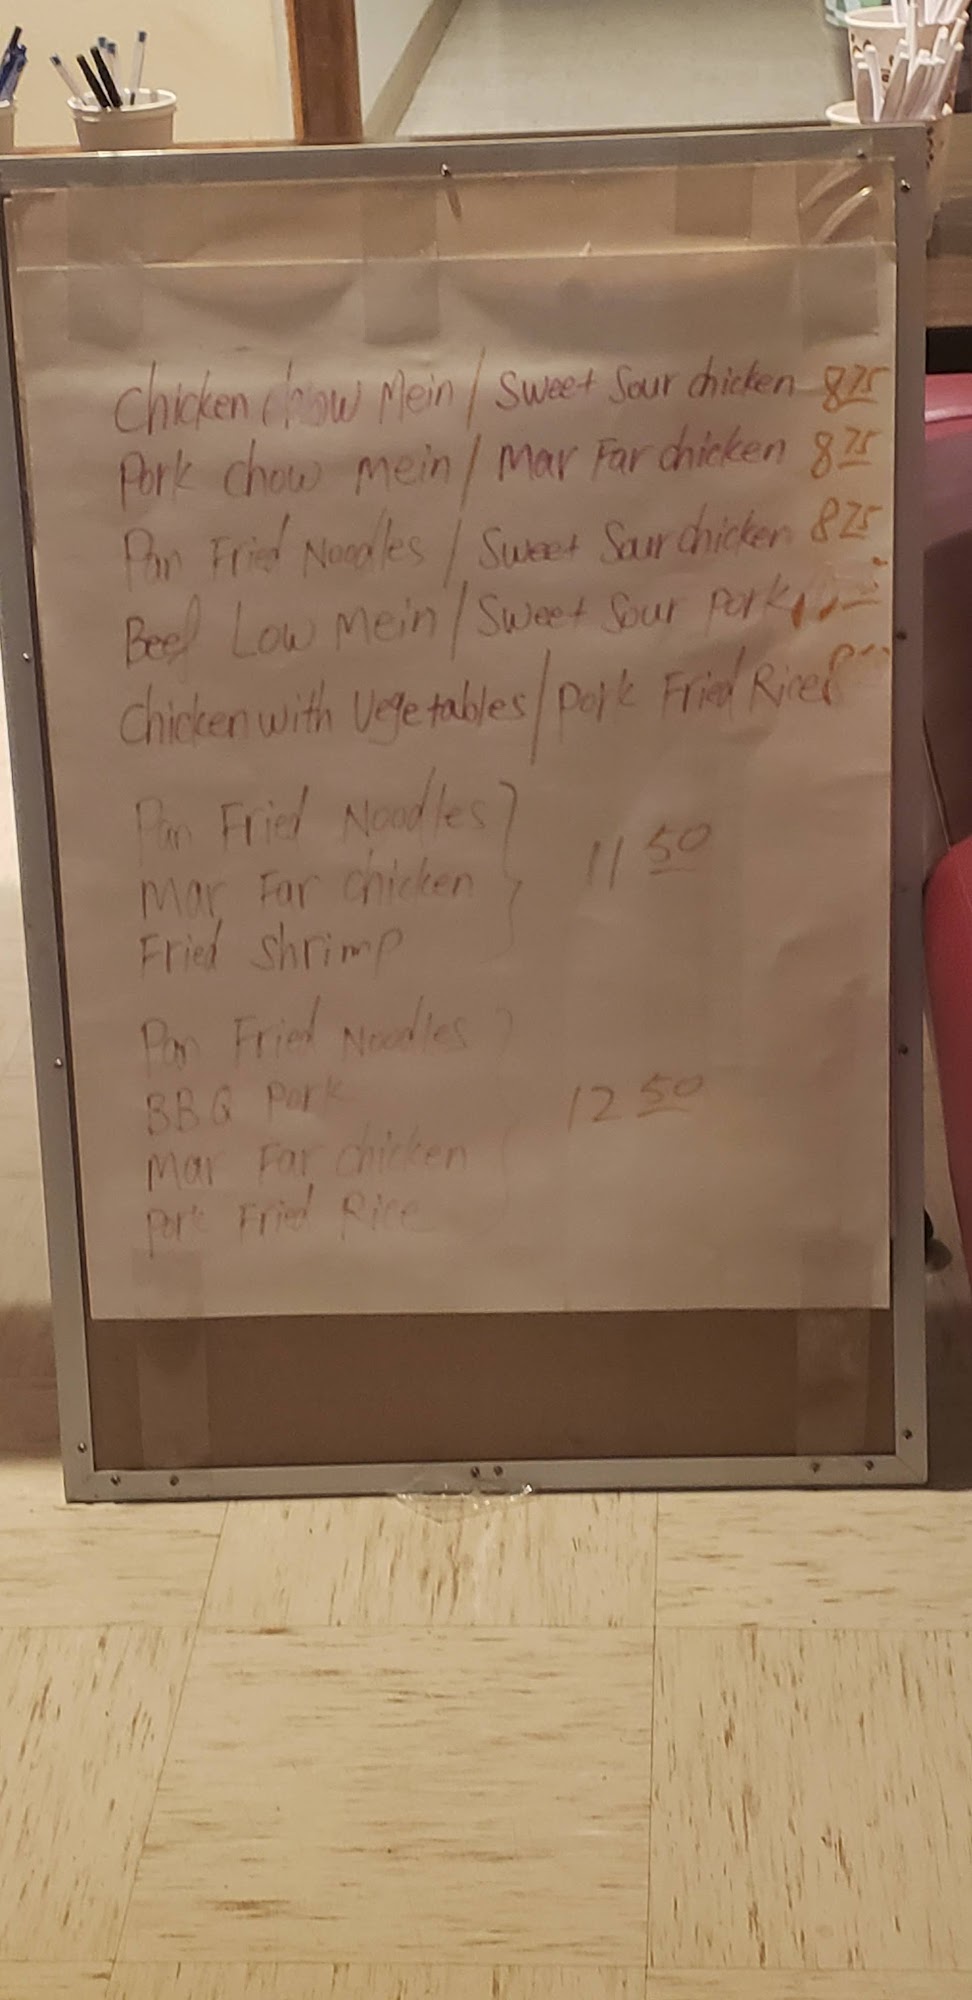 Chicken Chow Mein / Sweet Sour chicken 8 75
Pork Chow Mein / Mar Far chicken 8 75
Pan Fried Noodles / Sweet Sour chicken 8 75
Beef Low Mein / Sweet Sour Pork
Chicken with Vegetables / Pork Fried Rice
Pan Fried Noodles
Mar Far chicken 11 50
Fried Shrimp
Pan Fried Noodles
BBQ Pork 12 50
Mar Far chicken
Pork Fried Rice